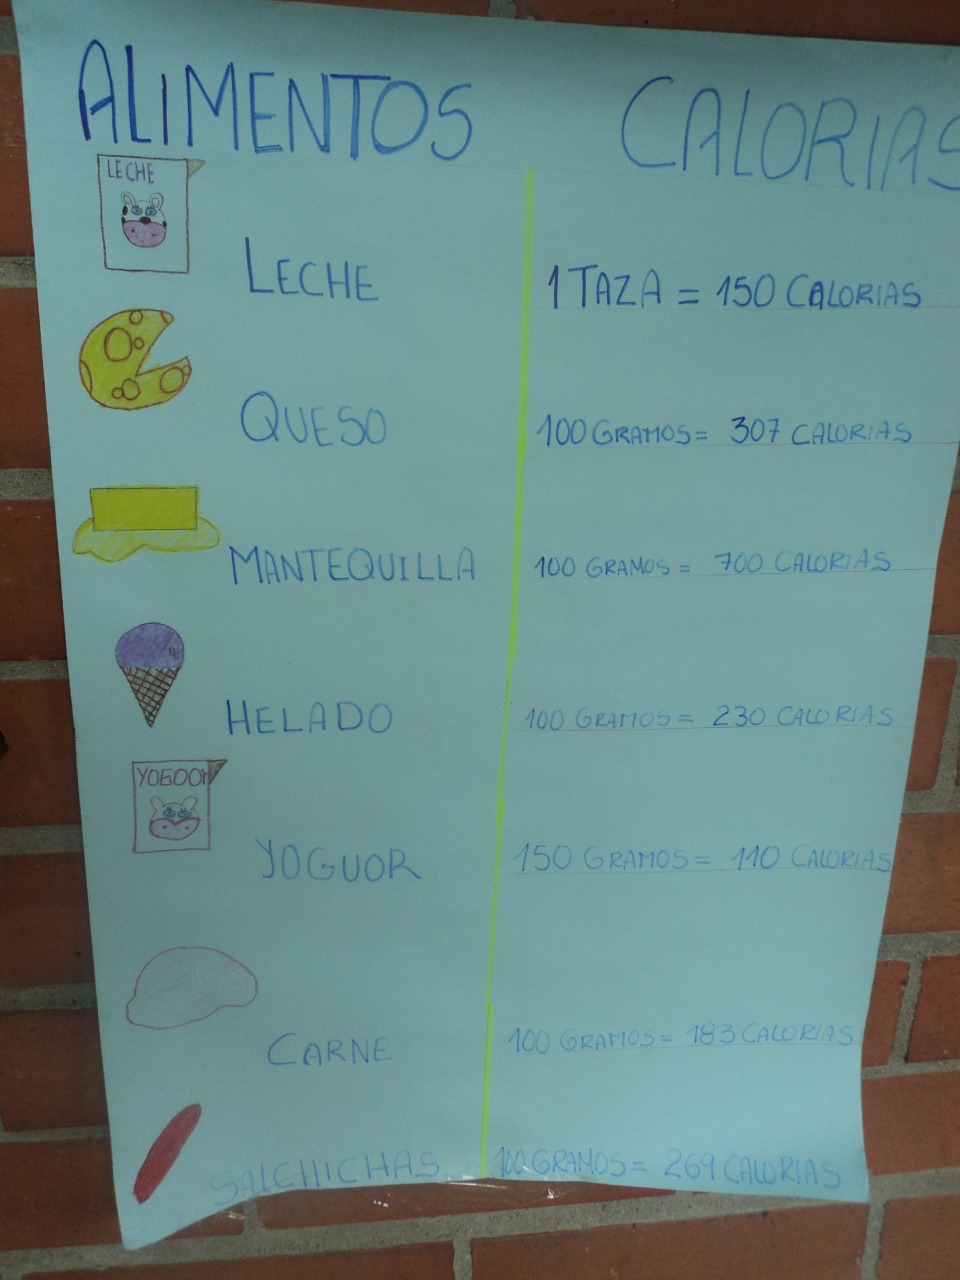 ALIMENTOS CALORIAS
LECHE
LECHE 1 TAZA = 150 CALORIAS
QUESO 100 GRAMOS = 307 CALORIAS
MANTEQUILLA 100 GRAMOS = 700 CALORIAS
HELADO 100 GRAMOS = 230 CALORIAS
YOGOOR
YOGUOR 150 GRAMOS = 110 CALORIAS
CARNE 100 GRAMOS = 183 CALORIAS
SALCHICHAS 100 GRAMOS = 269 CALORIAS